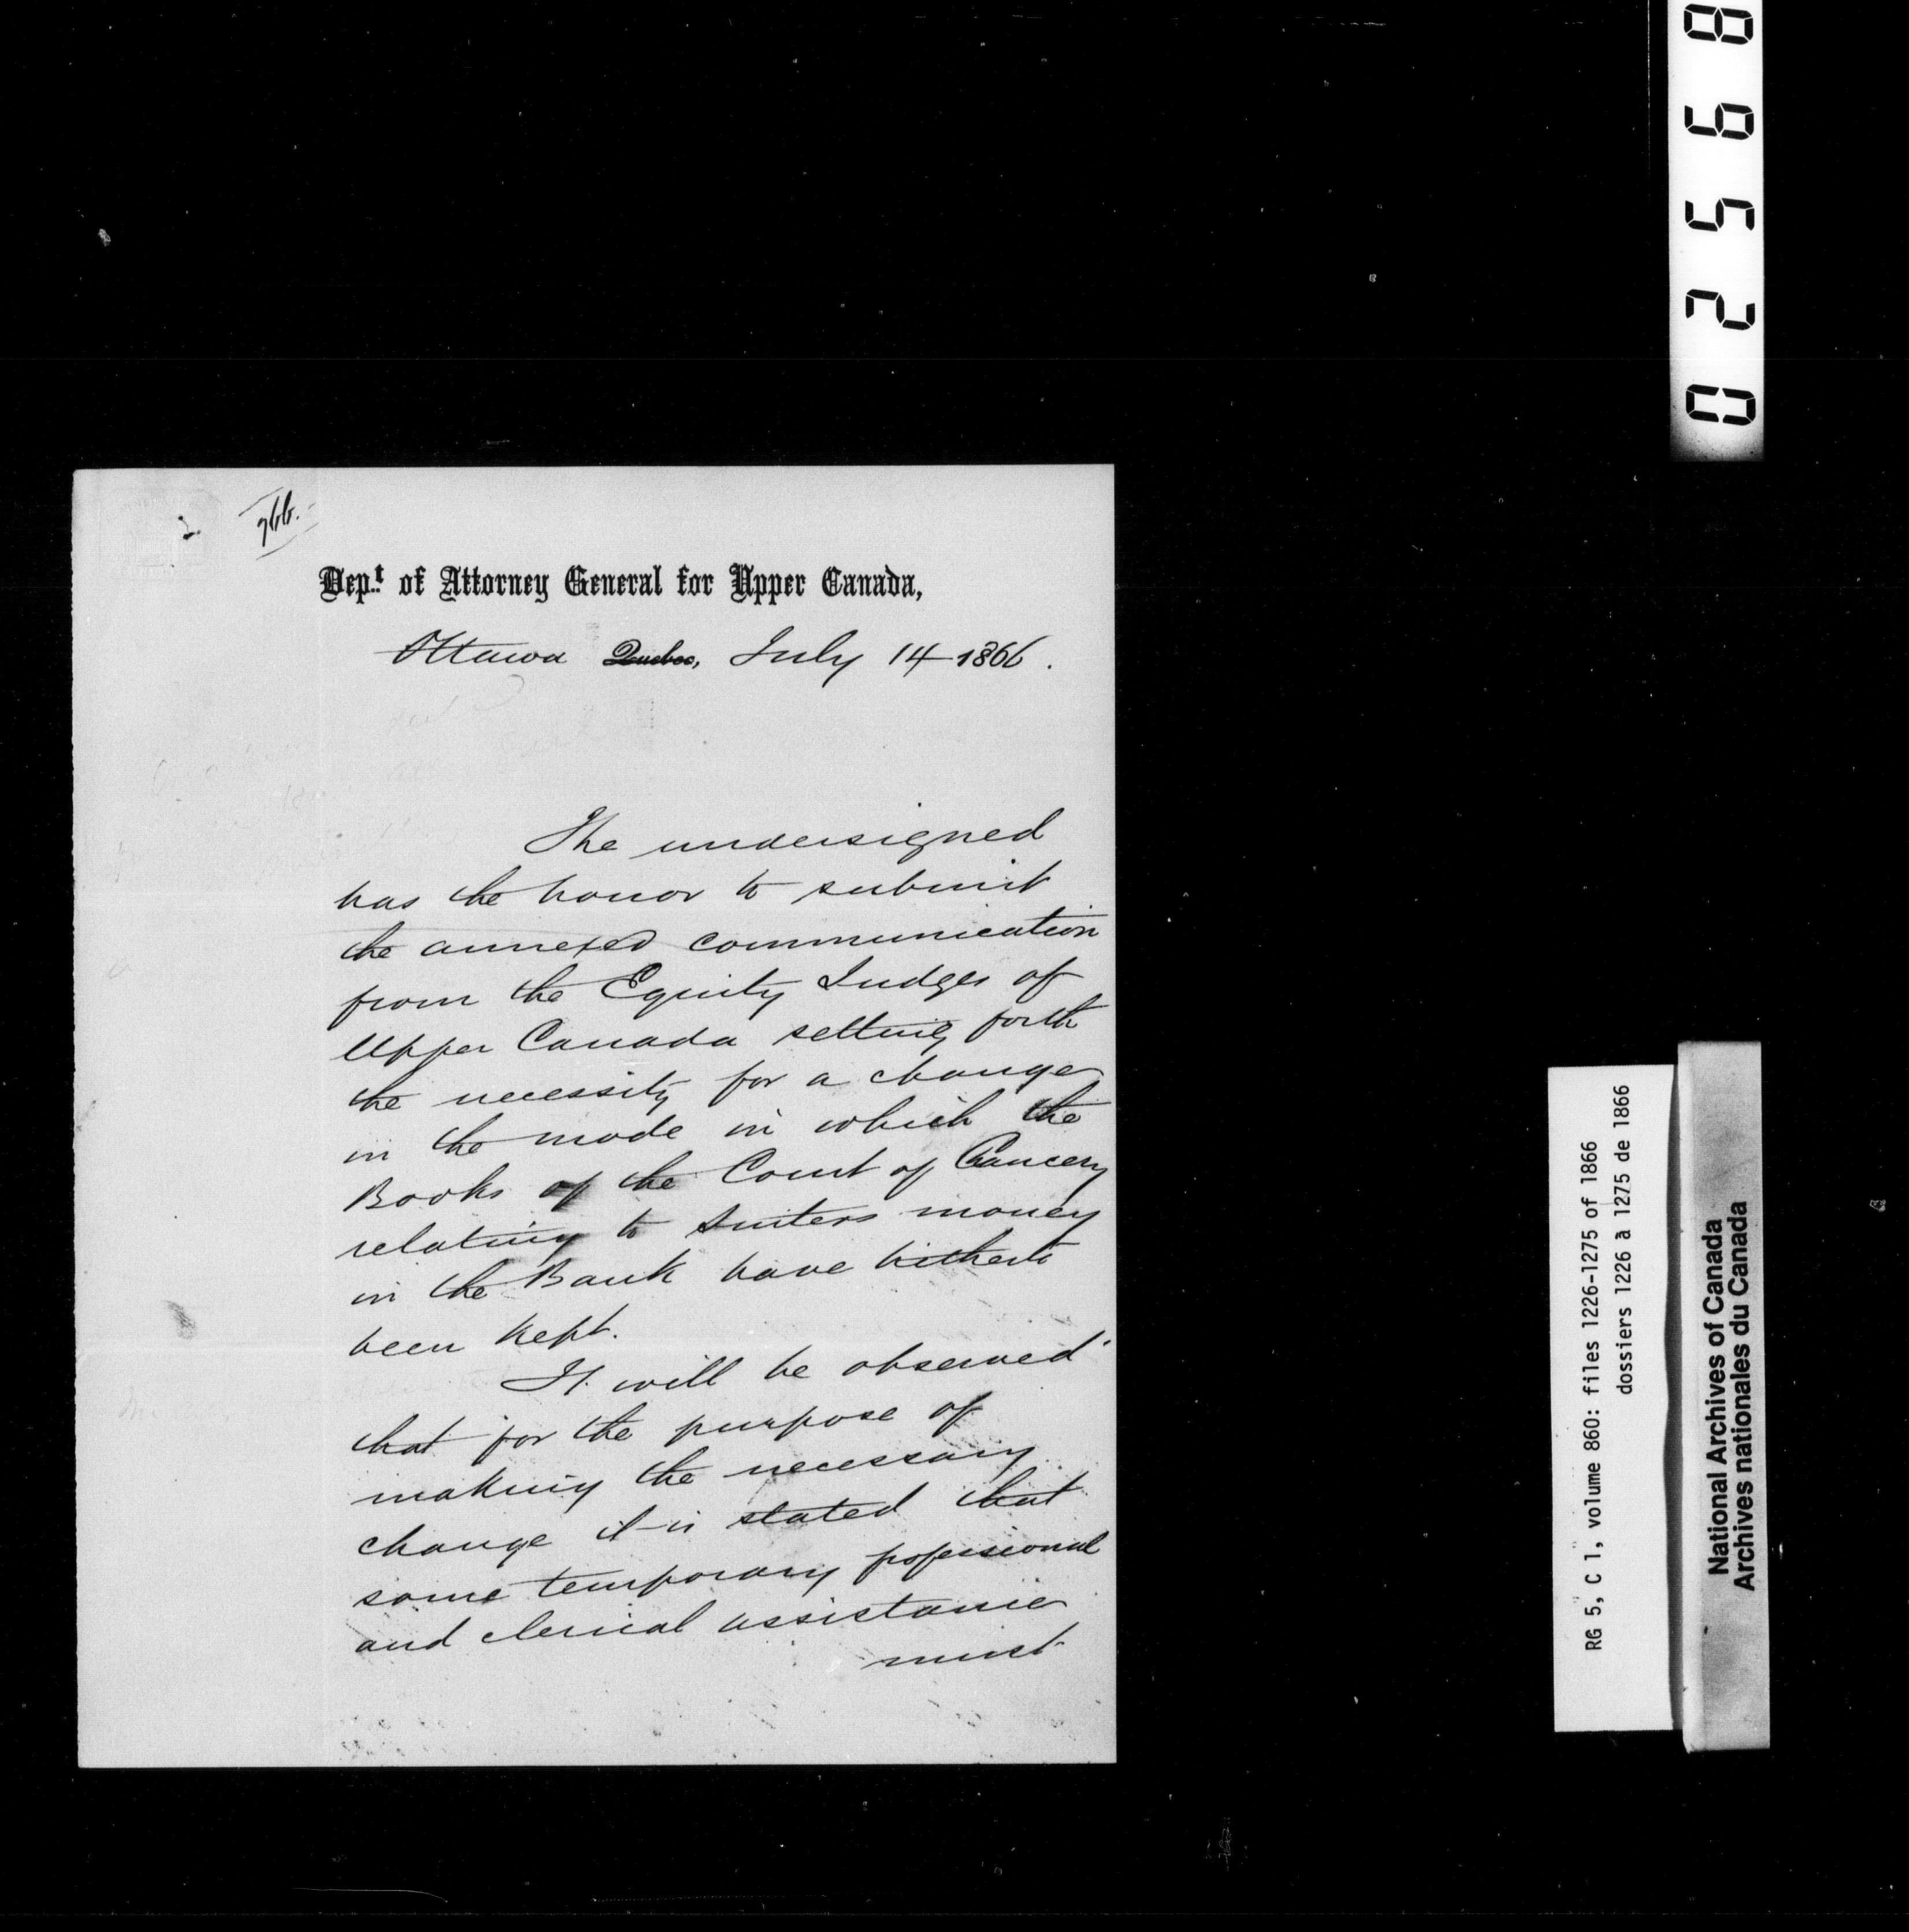 766.
Dep.t of Attorney General for Upper Canada,
Ottawa Quebec, July 14 1866.
The undersigned
has the honor to submit
the annexed communication
from the Equity Judges of
Upper Canada setting forth
the necessity for a change
in the mode in which the
Books of the Court of Chancery
relating to Suitors money
in the Bank have hitherto
been kept.
It will be observed
that for the purpose of
making the necessary
change it is stated that
some temporary professional
and clerical assistance
must
02568
RG 5, C 1, volume 860: files 1226-1275 of 1866
dossiers 1226 à 1275 de 1866
National Archives of Canada
Archives nationales du Canada